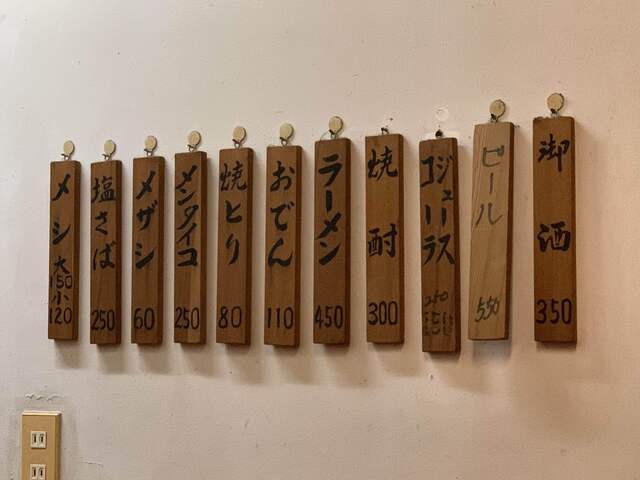 御酒 350
ビール 550
ジュース
コーラ
焼酎 300
ラーメン 450
おでん 110
焼とり 80
メンタイコ 250
メザシ 60
塩さば 250
メシ 大150 小120